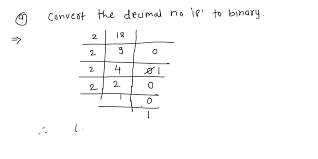 Q Convert the decimal no '18' to binary.
⇒
2 | 18
2 | 9 | 0
2 | 4 | 1
2 | 2 | 0
1 | 0
1
∴ (